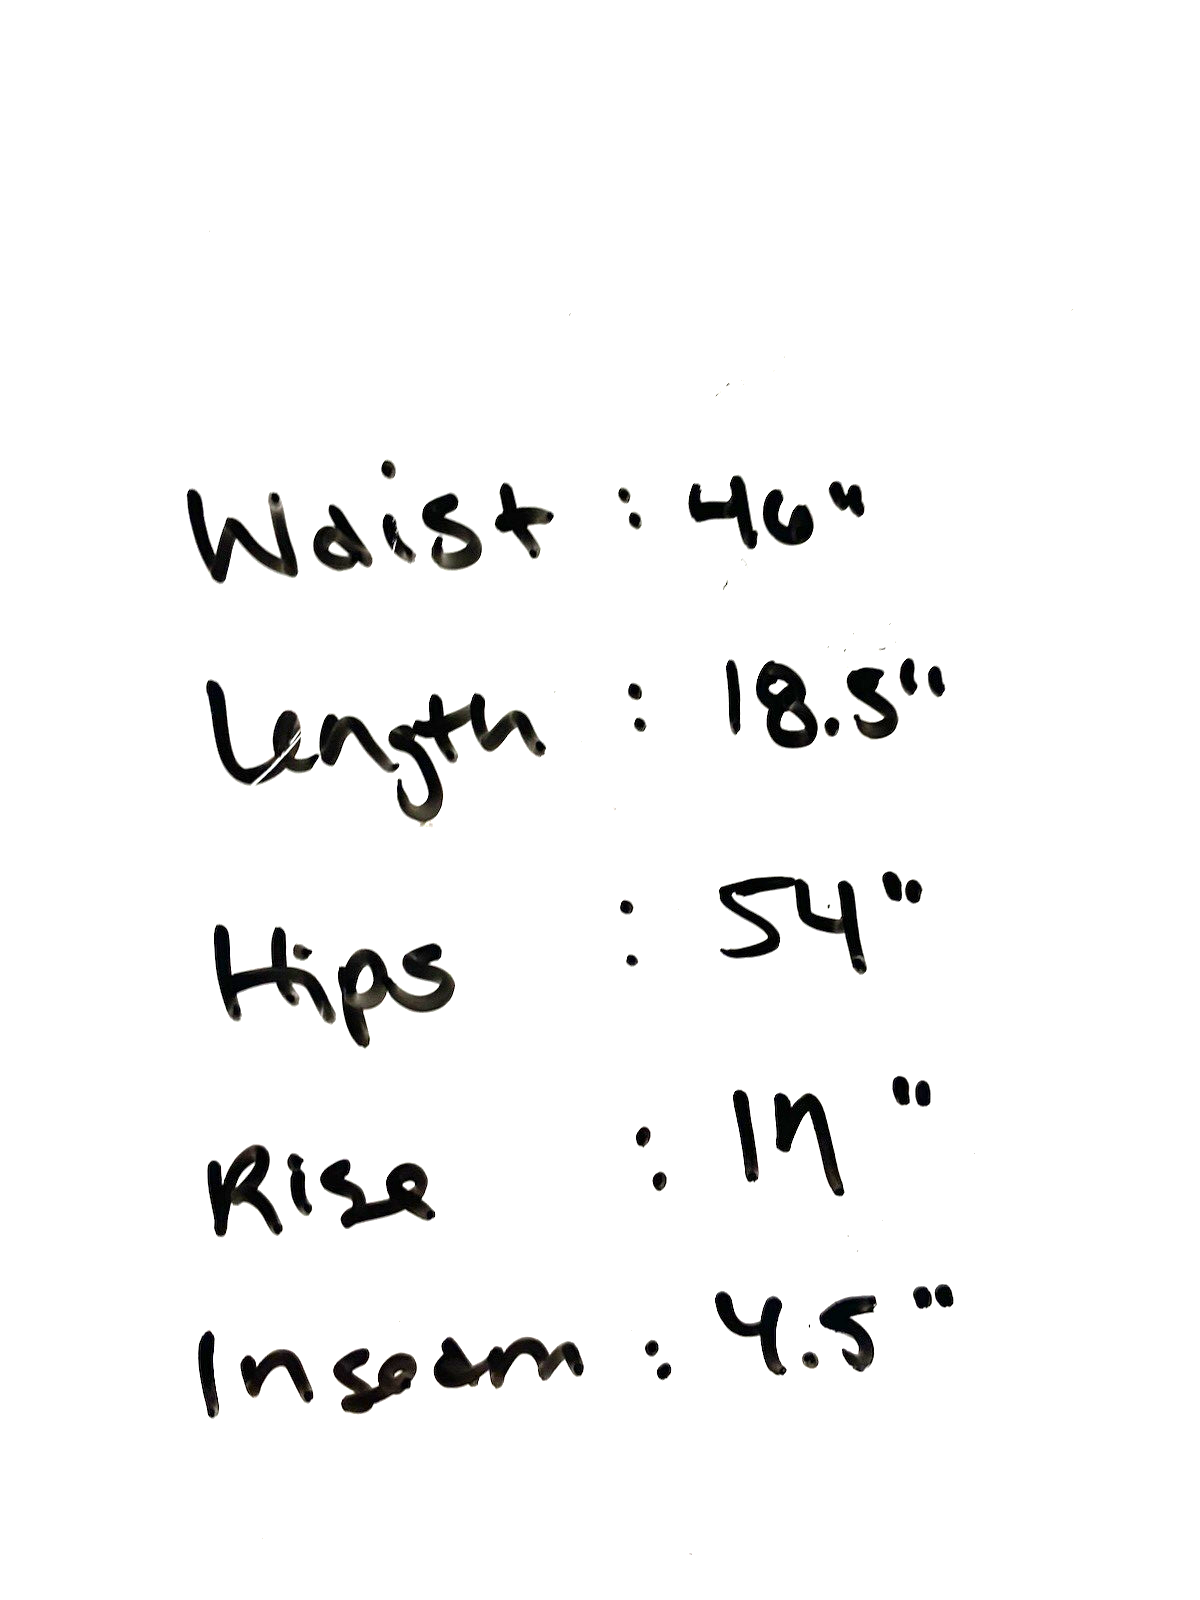 Waist : 46"
Length : 18.5"
Hips : 54"
Rise : 17"
Inseam : 4.5"